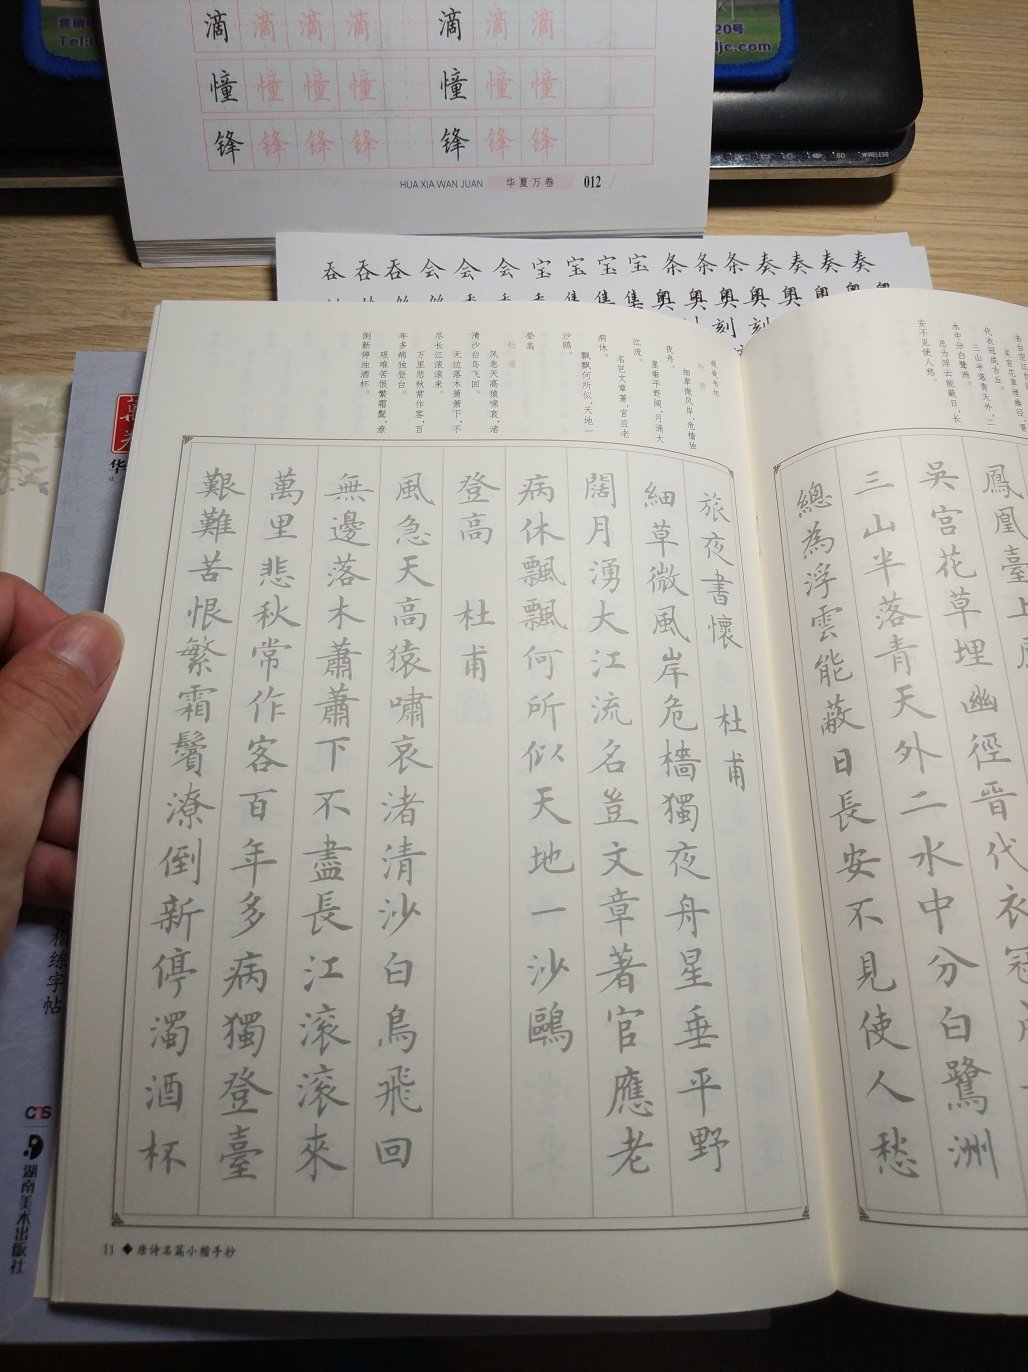 滴 滴 滴 滴 滴 滴 滴
憧 憧 憧 憧 憧 憧 憧
锋 锋 锋 锋 锋 锋 锋
HUA XIA WAN JUAN 华夏万卷 012
WIRELESS
吞吞吞会会会宝宝宝宝条条条奏奏奏奏
旅夜书怀
杜甫
细草微风岸，危樯独
夜舟。
星垂平野阔，月涌大
江流。
名岂文章著，官应老
病休。
飘飘何所似，天地一
沙鸥。
登高
杜甫
风急天高猿啸哀，渚
清沙白鸟飞回。
无边落木萧萧下，不
尽长江滚滚来。
万里悲秋常作客，百
年多病独登台。
艰难苦恨繁霜鬓，潦
倒新停浊酒杯。
旅夜書懷 杜甫
細草微風岸危檣獨夜舟星垂平野
闊月湧大江流名豈文章著官應老
病休飄飄何所似天地一沙鷗
登高 杜甫
風急天高猿嘯哀渚清沙白鳥飛回
無邊落木蕭蕭下不盡長江滾滾來
萬里悲秋常作客百年多病獨登臺
艱難苦恨繁霜鬢潦倒新停濁酒杯
11 ◆ 唐诗名篇小楷手抄
代衣冠成古丘。
三山半落青天外，二
水中分白鹭洲。
总为浮云能蔽日，长
安不见使人愁。
鳳凰臺上
吳宮花草埋幽徑晉代衣冠
三山半落青天外二水中分白鷺洲
總為浮雲能蔽日長安不見使人愁
楷练字帖
湖南美术出版社